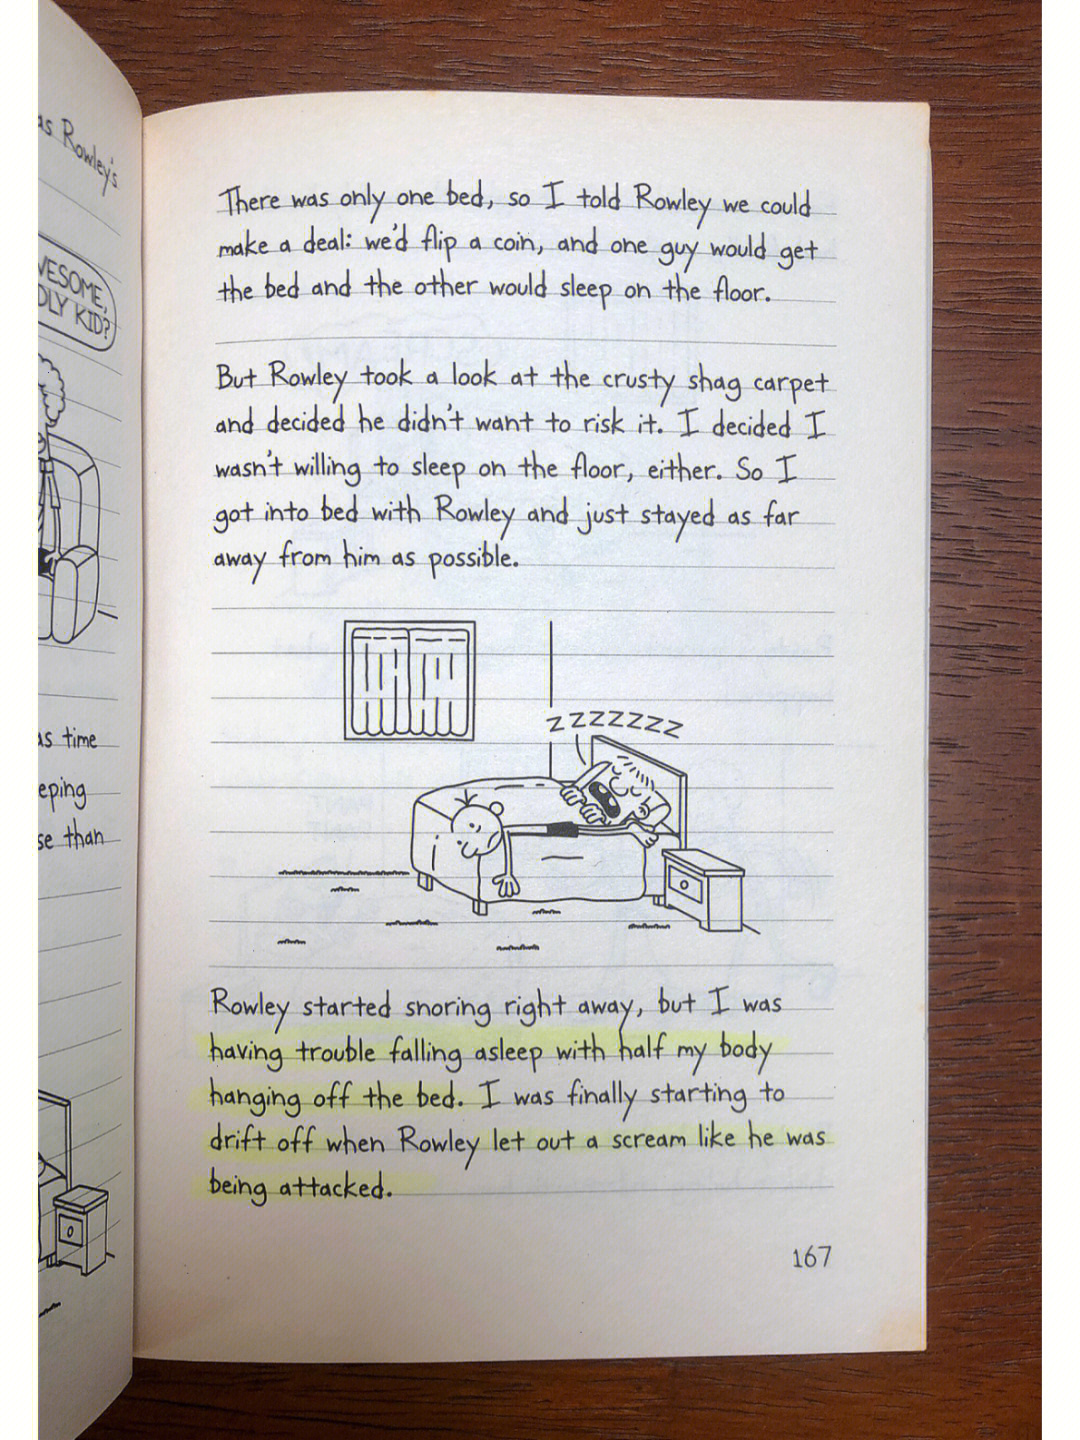 as Rowley's
There was only one bed, so I told Rowley we could
make a deal: we'd flip a coin, and one guy would get
the bed and the other would sleep on the floor.
KID?
But Rowley took a look at the crusty shag carpet
and decided he didn't want to risk it. I decided I
wasn't willing to sleep on the floor, either. So I
got into bed with Rowley and just stayed as far
away from him as possible.
ZZZZZZZ
time
than
Rowley started snoring right away, but I was
having trouble falling asleep with half my body
hanging off the bed. I was finally starting to
drift off when Rowley let out a scream like he was
being attacked.
167